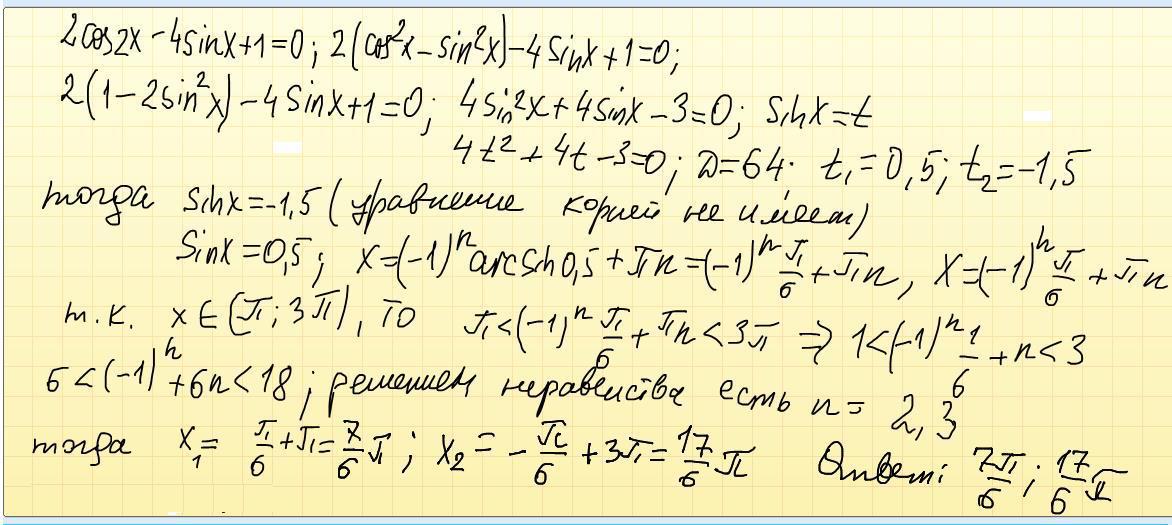 2cos2x-4sinx+1=0; 2(cos²x-sin²x)-4sinx+1=0;
2(1-2sin²x)-4sinx+1=0; 4sin²x+4sinx-3=0; sinx=t
4t²+4t-3=0; D=64; t₁=0,5; t₂=-1,5
тогда sinx=-1,5 (уравнение корней не имеет)
Sinx=0,5; x=(-1)ⁿarcsin0,5+πn=(-1)ⁿπ/6+πn, x=(-1)ⁿπ/6+πn
т.к. x∈(π;3π), то π<(-1)ⁿπ/6+πn<3π ⇒ 1<(-1)ⁿ1/6+n<3
6<(-1)ⁿ+6n<18; решением неравенства есть n= 2,3
тогда x₁= π/6+π=7/6π; x₂=-π/6+3π=17/6π Ответ: 7π/6; 17/6π